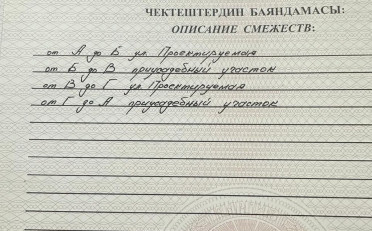 ЧЕКТЕШТЕРДИН БАЯНДАМАСЫ:
ОПИСАНИЕ СМЕЖЕСТВ:
от А до Б ул. Проектируемая
от Б до В приусадебный участок
от В до Г ул. Проектируемая
от Г до А приусадебный участок